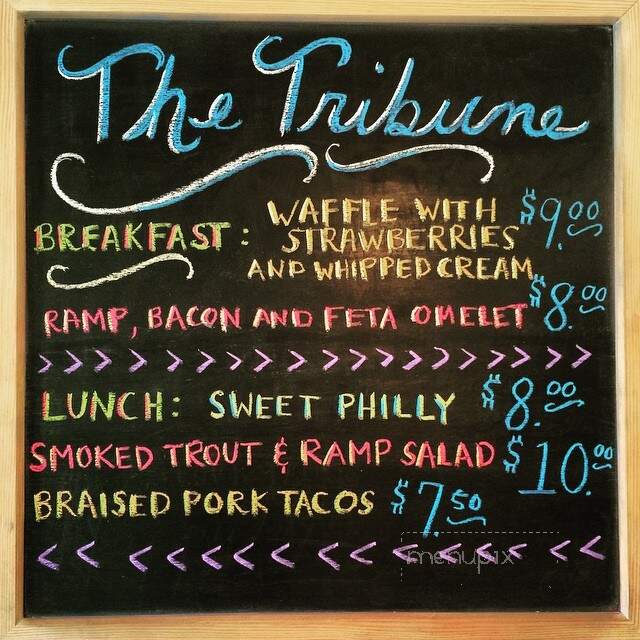 The Tribune
BREAKFAST: WAFFLE WITH $9.00
STRAWBERRIES
AND WHIPPED CREAM
RAMP, BACON AND FETA OMELET $8.00
> > > > > > > > > > > > > > > > > > >
LUNCH: SWEET PHILLY $8.00
SMOKED TROUT & RAMP SALAD $10.00
BRAISED PORK TACOS $7.50
< < < < < < < < < < < < < < <
menupix